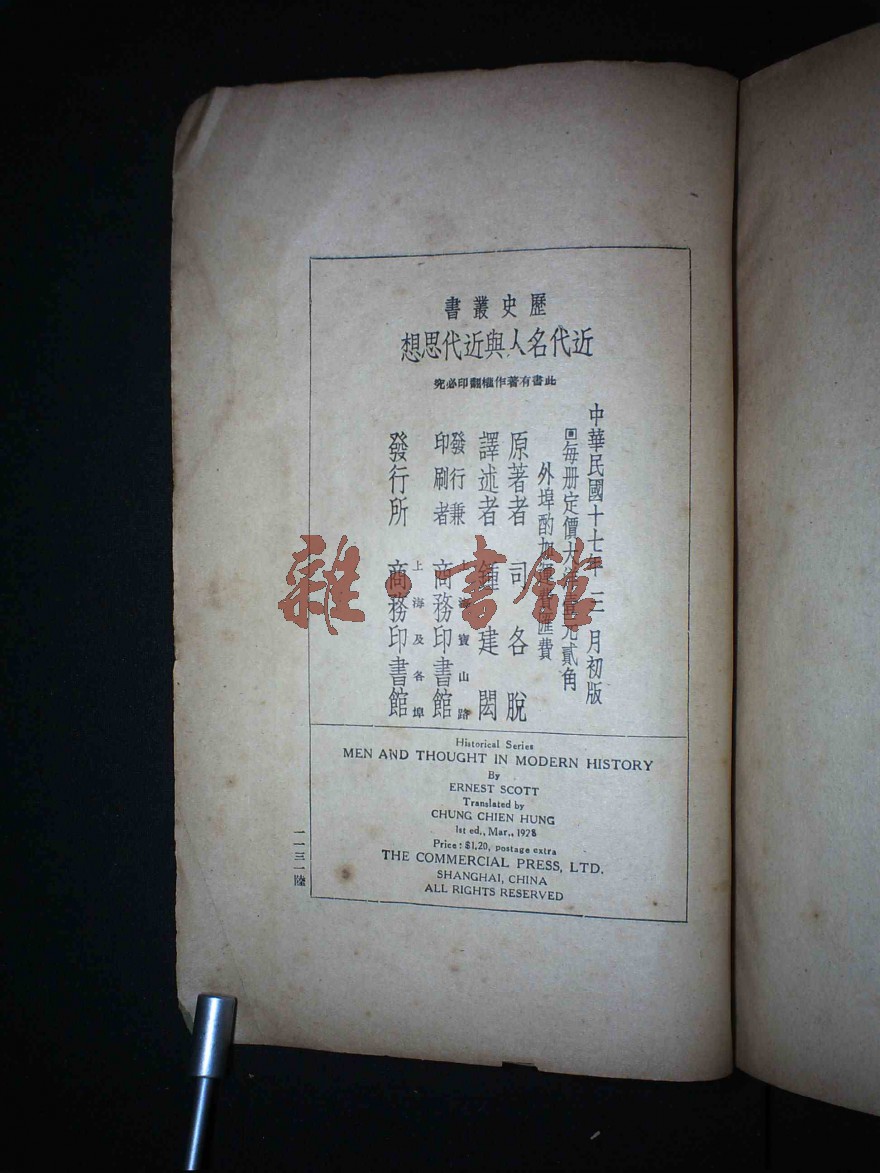 歷史叢書
近代名人與近代思想
此書有著作權翻印必究
中華民國十七年三月初版
回每册定價大洋壹元貳角
外埠酌加運費匯費
原著者 司各脫
譯述者 鍾建閎
發行兼印刷者 上海寶山路 商務印書館
發行所 上海及各埠 商務印書館
Historical Series
MEN AND THOUGHT IN MODERN HISTORY
By
ERNEST SCOTT
Translated by
CHUNG CHIEN HUNG
1st ed., Mar., 1928
Price : $1.20, postage extra
THE COMMERCIAL PRESS, LTD.
SHANGHAI, CHINA
ALL RIGHTS RESERVED
一一三一陸
雜·書館